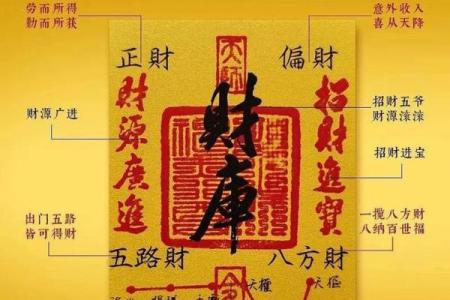 劳而所得
勤而所获
意外收入
喜从天降
正財
天師
偏財
財源廣進
財庫
招財進寶
财源广进
招财五爷
财源滚滚
招财进宝
出门五路
皆可得财
一揽八方财
八纳百世福
五路財
八方財
天樞
天樞